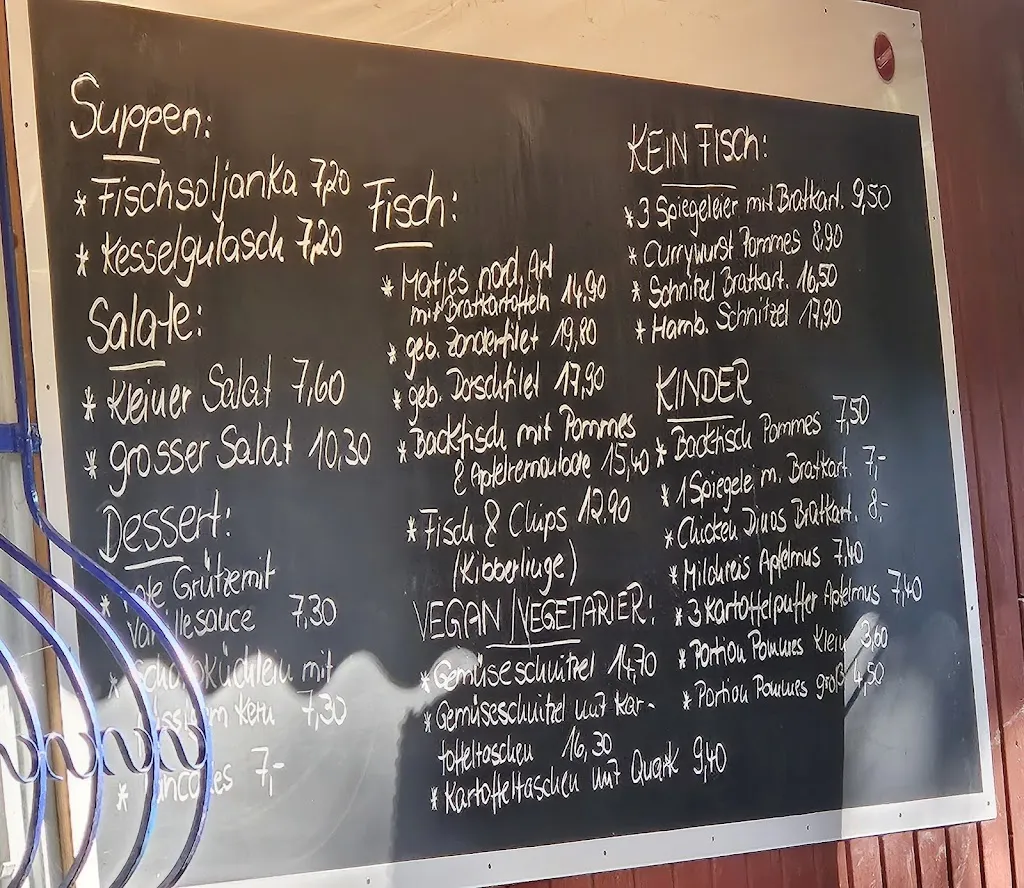 Suppen:
* Fischsoljanka 7,20
* Kesselgulasch 7,20
Salate:
* Kleiner Salat 7,60
* grosser Salat 10,30
Dessert:
* Grütze mit
sauce 7,30
* küchlein mit
Kern 7,30
* 7,-
Fisch:
* Matjes nord. Art
mit Bratkartoffeln 14,90
* geb. Zanderfilet 19,80
* geb. Dorschfilet 17,90
* Backfisch mit Pommes
& Apfelremoulade 15,40
* Fisch & Chips 12.90
(Kibberlinge)
VEGAN/VEGETARIER:
* Gemüseschnitzel 14,70
* Gemüseschnitzel mit Kar-
toffeltaschen 16,30
* Kartoffeltaschen mit Quark 9,40
KEIN FISCH:
* 3 Spiegeleier mit Bratkart. 9,50
* Currywurst Pommes 8,90
* Schnitzel Bratkart. 16,50
* Hamb. Schnitzel 17,90
KINDER
* Backfisch Pommes 7,50
* 1 Spiegelei m. Bratkart. 7,-
* Chicken Dinos Bratkart. 8,-
* Milchreis Apfelmus 7,40
* 3 Kartoffelpuffer Apfelmus 7,40
* Portion Pommes klein 3,60
* Portion Pommes groß 4,50